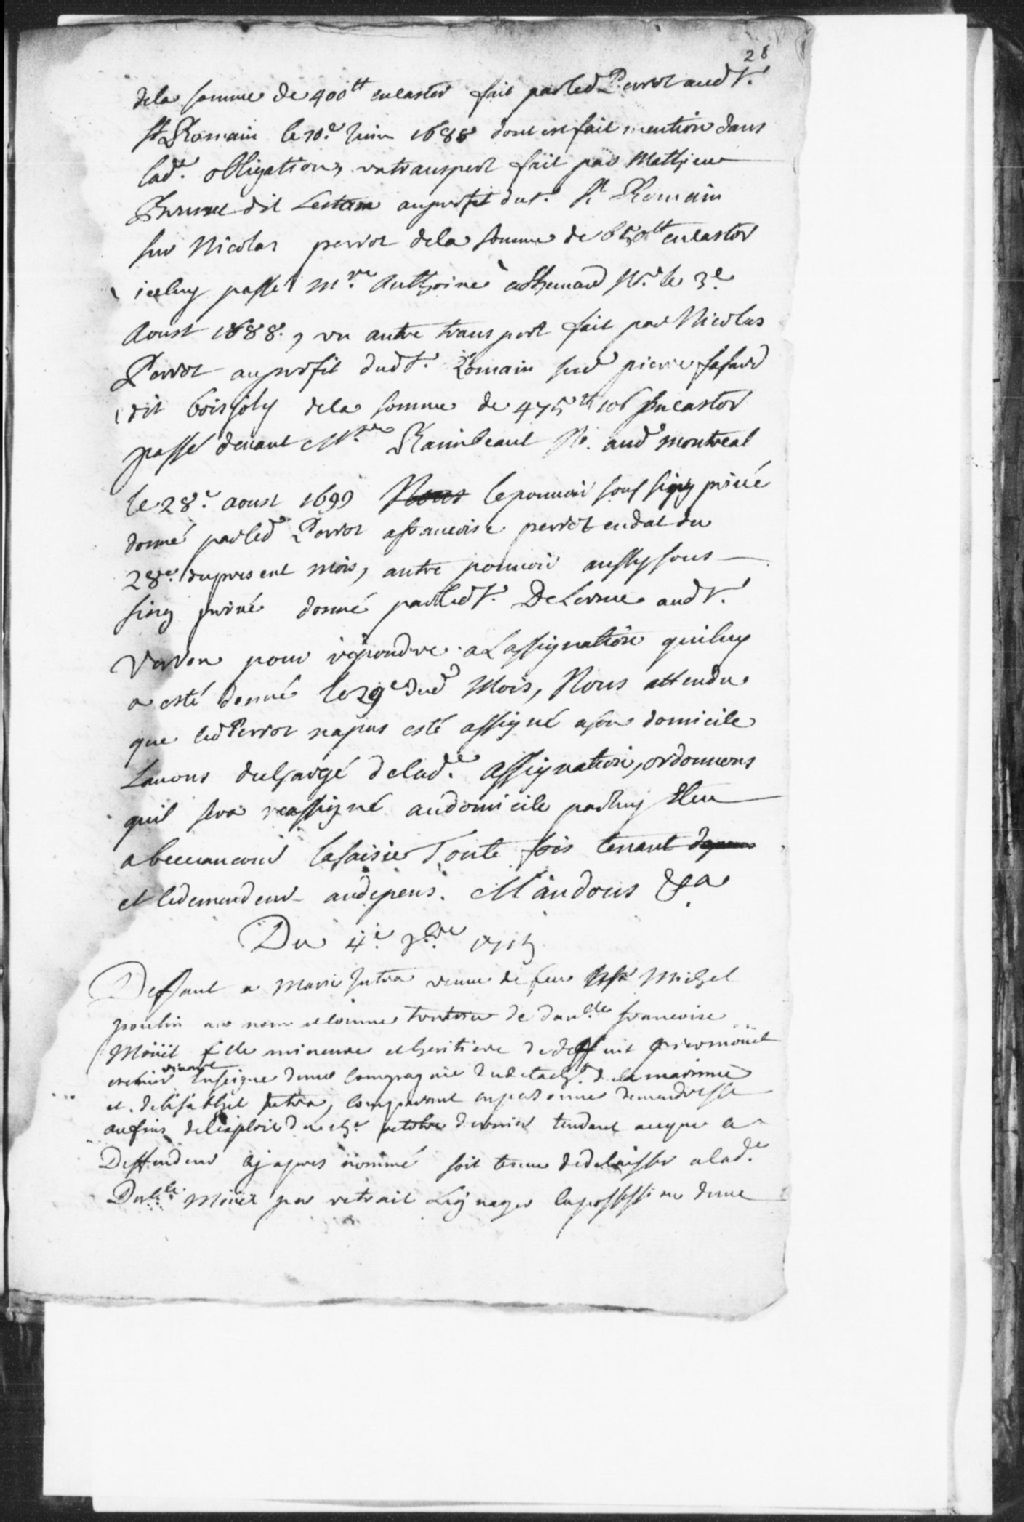 28
dela somme de 400tt en castor fait par led Perrot aud Sr.
St Romain le 10.e Juin 1688 dont est fait mention dans
lad.e obligation, un transport fait par Mathieu
Brunet dit Lestan au profit dud Sr. St Romain
sur Nicolas perrot dela somme de en castor
iceluy passé Mre. Anthoine adhemard Nre. le 3.e
Aoust 1688, un autre transport fait par Nicolas
Perrot au profit dud Sr. Romain sur pierre fafard
dit boisjoly dela somme de 475tt 10s en castor
passé devant Mre Raimbeault No. aud montreal
le 28.e aoust 1699 le pouvoir sous sing privé
donné par led Perrot a francoise perrot en dat du
28e. du present mois, autre pouvoir aussy sous
sing privé donné par led Sr. DeLorme aud Sr.
Verron pour repondre a Lassignation quiluy
a esté donné le 29e dud Mois, Nous attendu
que led Perrot na pas esté assigné a son domicile
Lavons deschargé de lad.e assignation, ordonnons
quil sera reassigné au domicile par luy Eleu
a beccancour la saisie Toute fois tenant depens
et le demandeur au depens. Mandons &a.
Du 4e 9bre 1715
Deffaut a Marie Jutra veuve de feu Michel
poulin au nom et comme tutrice de dam.lle francoise
Moüet fille mineure et heritiere de deffunt pierre moüet
vivant Enseigne dune Compagnie du detachmt. de la marinne
et d'elisabhet Jutra, comparant en personne demandresse
au fins de lexploit du octobre dernier tendant aceque le
Deffendeur cy apres nommé soit tenu de delaisser a lad.e
Dam.lle Moüet par retrait Lignager la possession dune